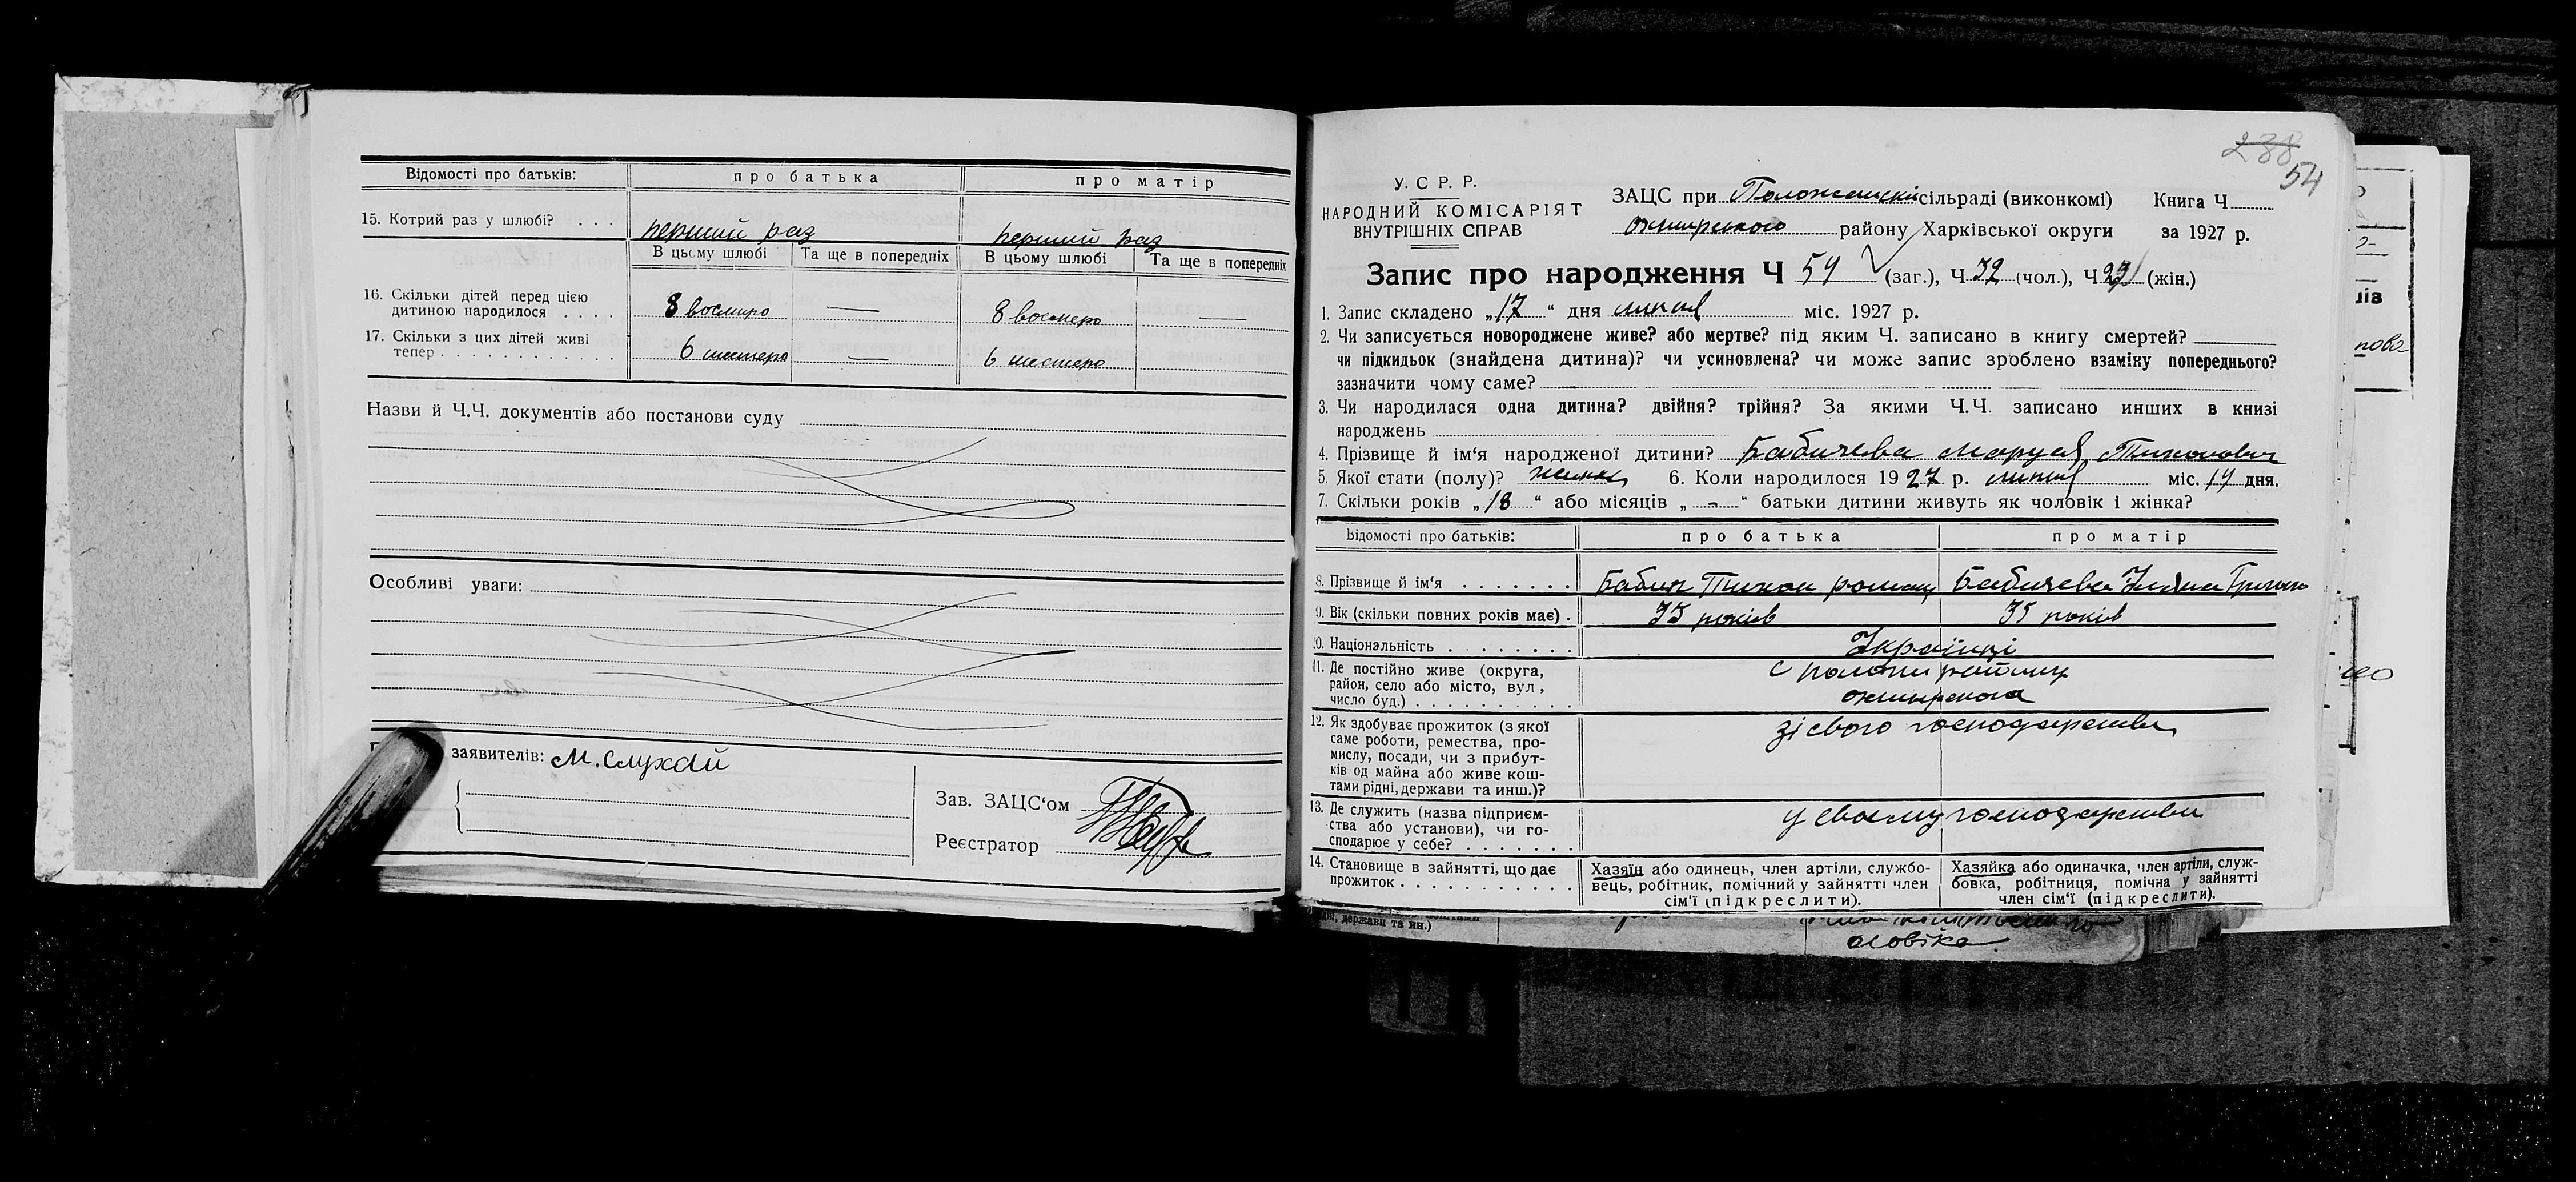 Відомості про батьків: про батька про матір
15. Котрий раз у шлюбі? . . . перший раз перший раз
В цьому шлюбі Та ще в попередніх В цьому шлюбі Та ще в попередніх
16. Скільки дітей перед цією
дитиною народилося . . . . 8 восмиро — 8 восмеро —
17. Скільки з цих дітей живі
тепер . . . . . . . . . . . . 6 шестеро — 6 шестеро
Назви й Ч.Ч. документів або постанови суду
Особливі уваги:
заявителів: М. Слухай
Зав. ЗАЦС'ом
Реєстратор
288
54
У. С. Р. Р.
НАРОДНИЙ КОМІСАРІЯТ
ВНУТРІШНІХ СПРАВ
ЗАЦС при сільраді (виконкомі) Книга Ч
району Харківської округи за 1927 р.
Запис про народження Ч 54 (заг.), Ч 32 (чол.), Ч (жін.)
1. Запис складено „17“ дня липня міс. 1927 р.
2. Чи записується новороджене живе? або мертве? під яким Ч. записано в книгу смертей?
чи підкидьок (знайдена дитина)? чи усиновлена? чи може запис зроблено взаміну попереднього?
зазначити чому саме?
3. Чи народилася одна дитина? двійня? трійня? За якими Ч.Ч. записано инших в книзі
народжень
4. Прізвище й ім'я народженої дитини? Бабичева Маруся Тихонович
5. Якої стати (полу)? 6. Коли народилося 1927 р. липня міс. 14 дня.
7. Скільки років „18“ або місяців „-“ батьки дитини живуть як чоловік і жінка?
Відомості про батьків: про батька про матір
8. Прізвище й ім'я . . . . . . . Бабич Тихон роман Бабичева Уляна
9. Вік (скільки повних років має) . років 35 років
10. Національність . . . . . . . . Українці
11. Де постійно живе (округа,
район, село або місто, вул.,
число буд.) . . . . . . . . . . .
12. Як здобуває прожиток (з якої зі свого господарства
саме роботи, ремества, про-
мислу, посади, чи з прибут-
ків од майна або живе кош-
тами рідні, держави та инш.)?
13. Де служить (назва підприєм- у своьму господарстви
ства або установи), чи го-
сподарює у себе? . . . . . . .
14. Становище в зайнятті, що дає Хазяїн або одинець, член артіли, службо- Хазяйка або одиначка, член артіли, служ-
прожиток . . . . . . . . . . . . вець, робітник, помічний у зайнятті член бовка, робітниця, помічна у зайнятті
сім'ї (підкреслити). член сім'ї (підкреслити).
держави та ин.)